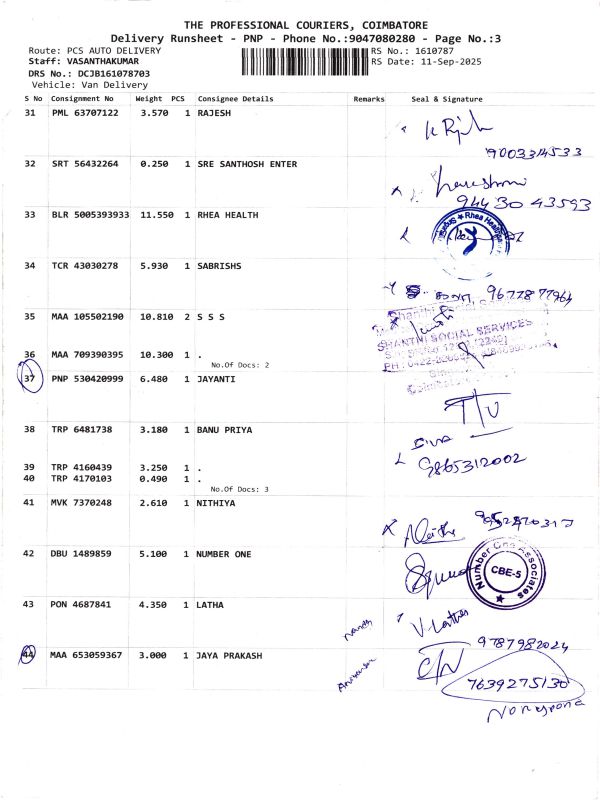 THE PROFESSIONAL COURIERS, COIMBATORE
Delivery Runsheet - PNP - Phone No.:9047080280 - Page No.:3
Route: PCS AUTO DELIVERY RS No.: 1610787
Staff: VASANTHAKUMAR RS Date: 11-Sep-2025
DRS No.: DCJB161078703
Vehicle: Van Delivery
S No Consignment No Weight PCS Consignee Details Remarks Seal & Signature
31 PML 63707122 3.570 1 RAJESH
9003314533
32 SRT 56432264 0.250 1 SRE SANTHOSH ENTER
94430 43593
33 BLR 5005393933 11.550 1 RHEA HEALTH
Rhea Health
34 TCR 43030278 5.930 1 SABRISHS
9677877964
35 MAA 105502190 10.810 2 S S S
SHANTHI SOCIAL SERVICES
36 MAA 709390395 10.300 1 .
No.Of Docs: 2
37 PNP 530420999 6.480 1 JAYANTI
38 TRP 6481738 3.180 1 BANU PRIYA
9865312002
39 TRP 4160439 3.250 1 .
40 TRP 4170103 0.490 1 .
No.Of Docs: 3
41 MVK 7370248 2.610 1 NITHIYA
42 DBU 1489859 5.100 1 NUMBER ONE
Number One Associates
CBE-5
43 PON 4687841 4.350 1 LATHA
V. Latha
9787982024
44 MAA 653059367 3.000 1 JAYA PRAKASH
7639275130